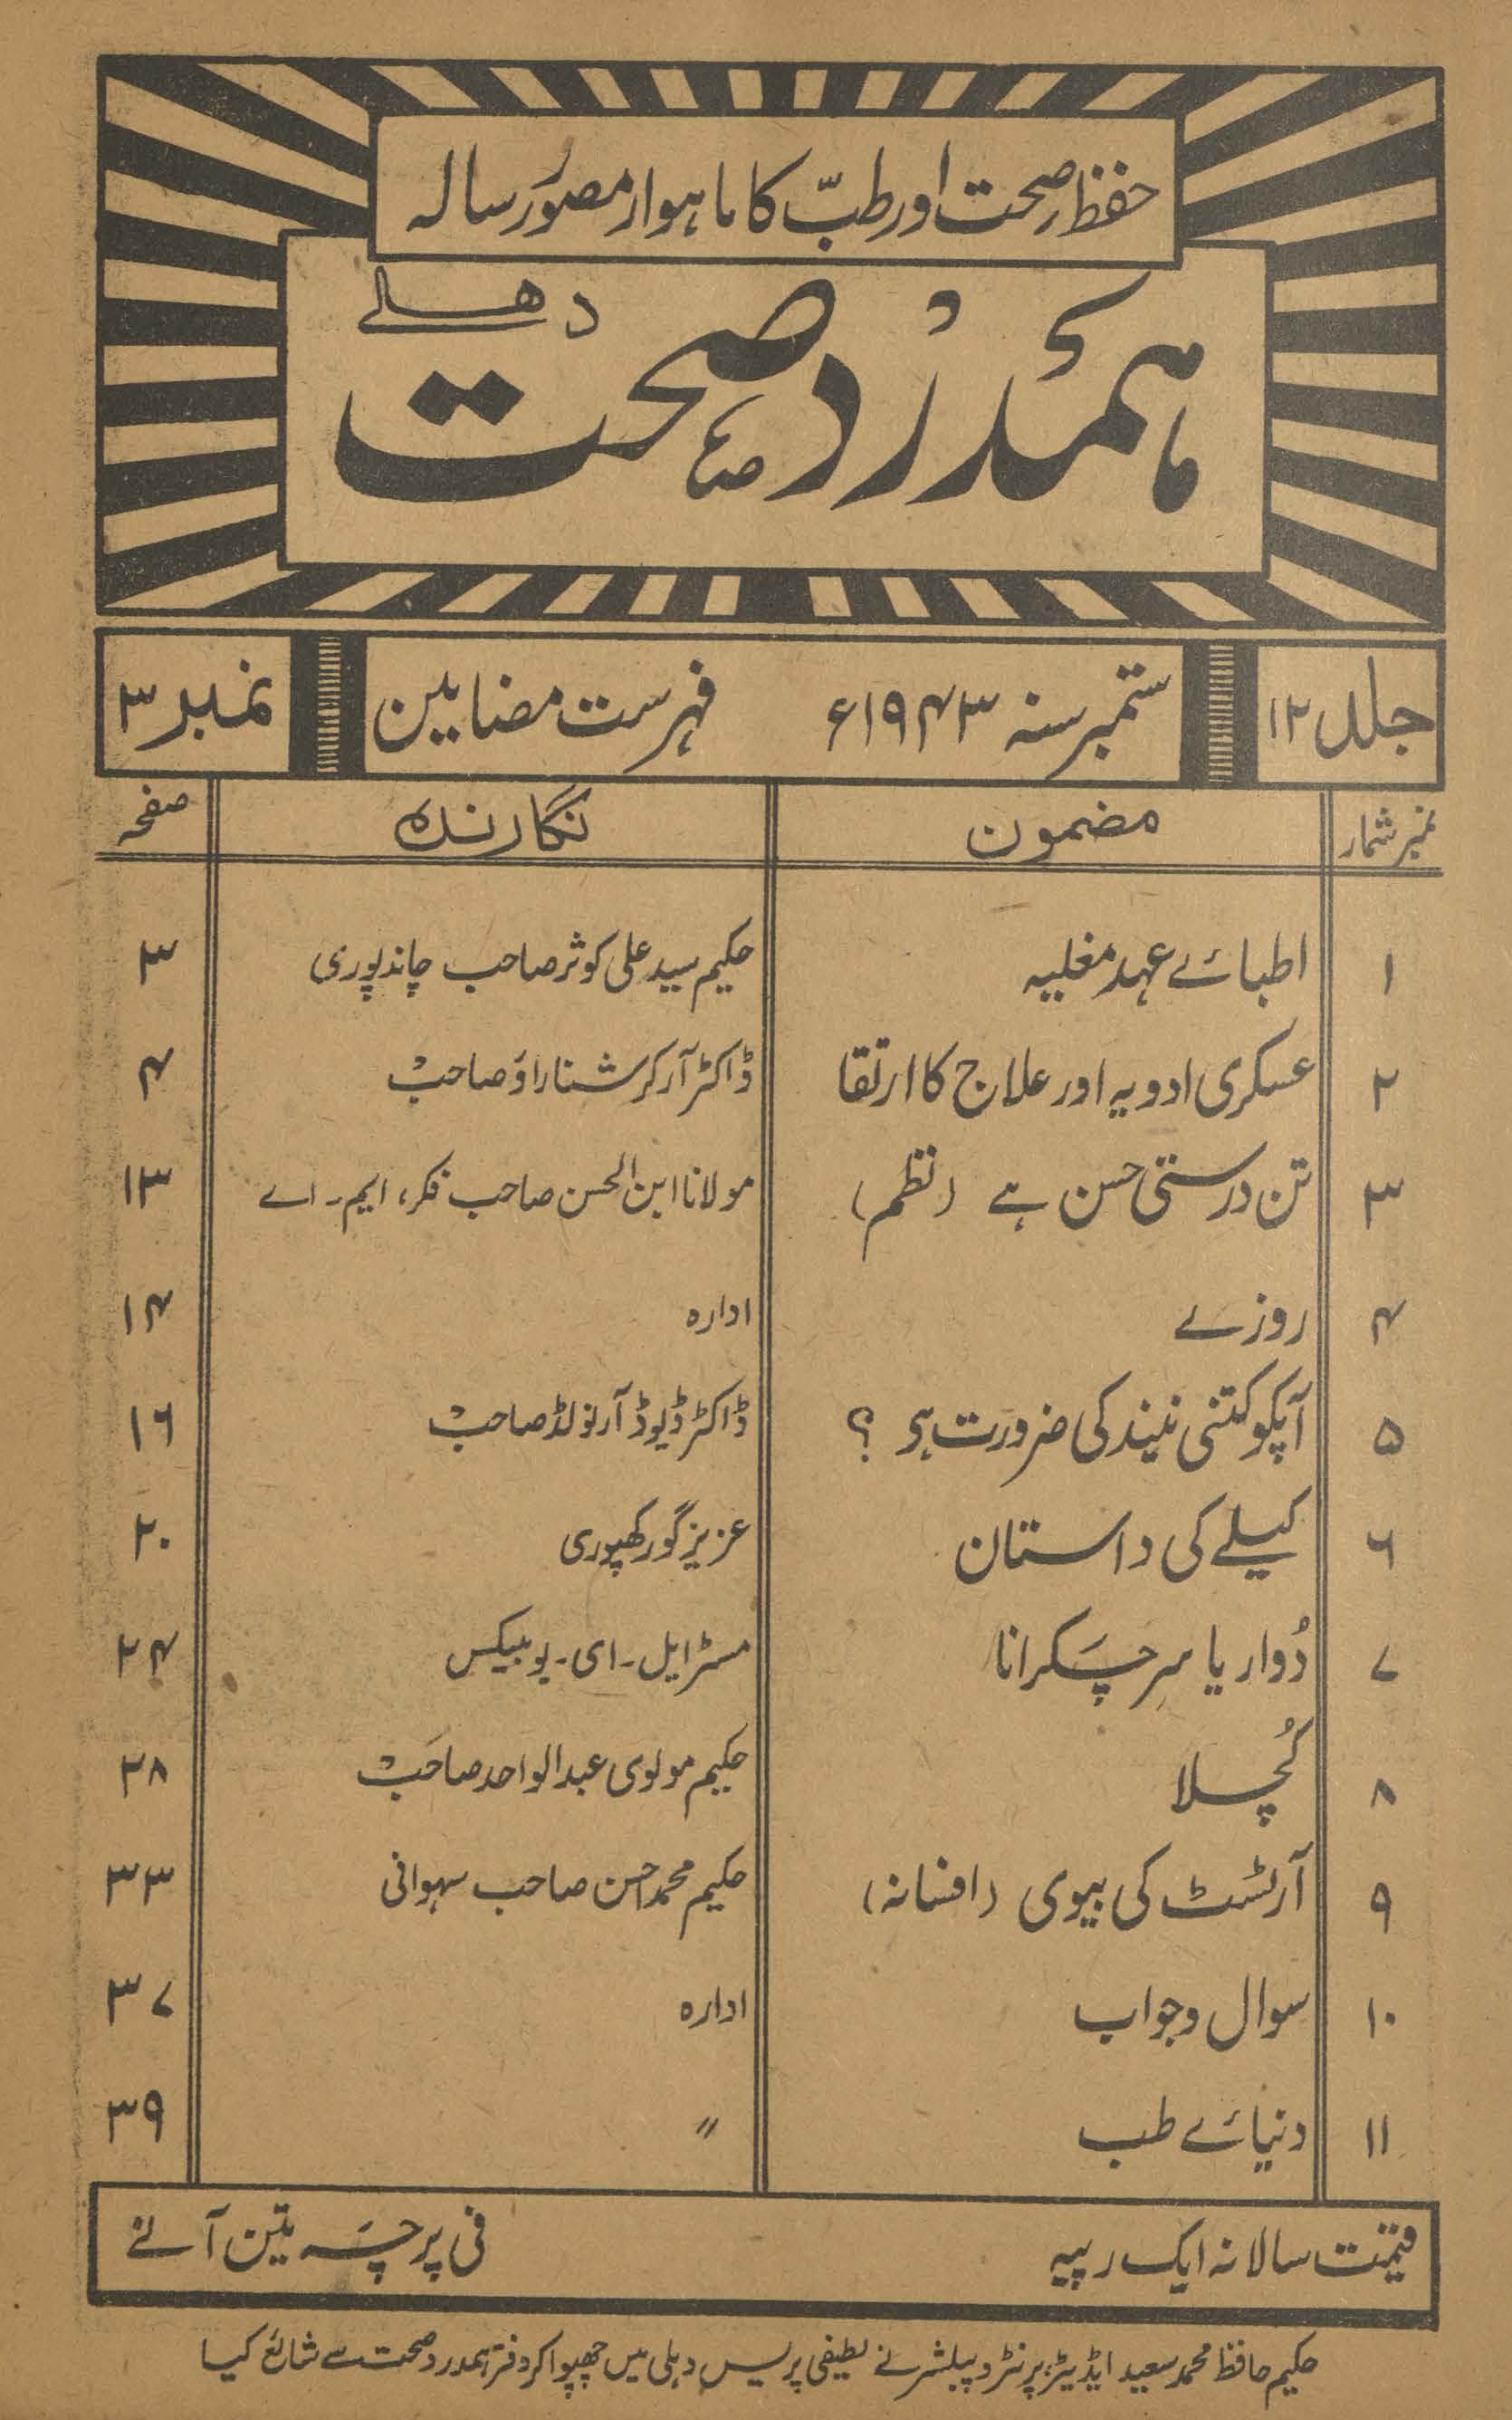 حفظ صحت اور طبّ کا ماہوار مصوّر رسالہ
ہمدرد صحت دھلے
جلد ۱۲ ستمبر سنہ ۱۹۴۳ء فہرست مضامین نمبر ۳
نمبر شمار مضمون نگارندہ صفحہ
۱ اطبائے عہد مغلیہ حکیم سید علی کوثر صاحب چاندپوری ۳
۲ عسکری ادویہ اور علاج کا ارتقا ڈاکٹر آر کرشنا راؤ صاحب ۴
۳ تن درستی حسن ہے (نظم) مولانا ابن الحسن صاحب فکر، ایم۔ اے ۱۳
۴ روزے ادارہ ۱۴
۵ آپکو کتنی نیند کی ضرورت ہی ؟ ڈاکٹر ڈیوڈ آرنولڈ صاحب ۱۶
۶ کیلے کی داستان عزیز گورکھپوری ۲۰
۷ دُوار یا سر چَکرانا مسٹر ایل۔ ای۔ یوبیکس ۲۴
۸ کُچلا حکیم مولوی عبدالواحد صاحب ۲۸
۹ آرٹسٹ کی بیوی (افسانہ) حکیم محمد احسن صاحب سہوانی ۳۳
۱۰ سوال و جواب ادارہ ۳۷
۱۱ دنیائے طب " ۳۹
قیمت سالانہ ایک رپیہ فی پرچہ تین آنے
حکیم حافظ محمد سعید ایڈیٹر، پرنٹر و پبلشر نے لطیفی پریس دہلی میں چھپوا کر دفتر ہمدرد صحت سے شائع کیا